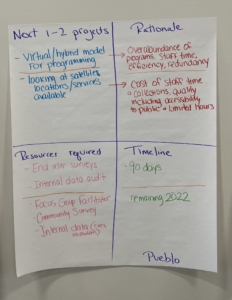 Next 1-2 projects
- Virtual/hybrid model
for programming
- looking at satellite
locations/services
available
Rationale
Overabundance of
programs, Staff time,
efficiency, redundancy
Cost of staff time
+ collections, quality
including accessibility
to public + limited hours
Resources required
- End user surveys
- Internal data audit
- Focus Group Facilitator
- Community Survey
- Internal data
Timeline
- 90 days
remaining 2022
Pueblo